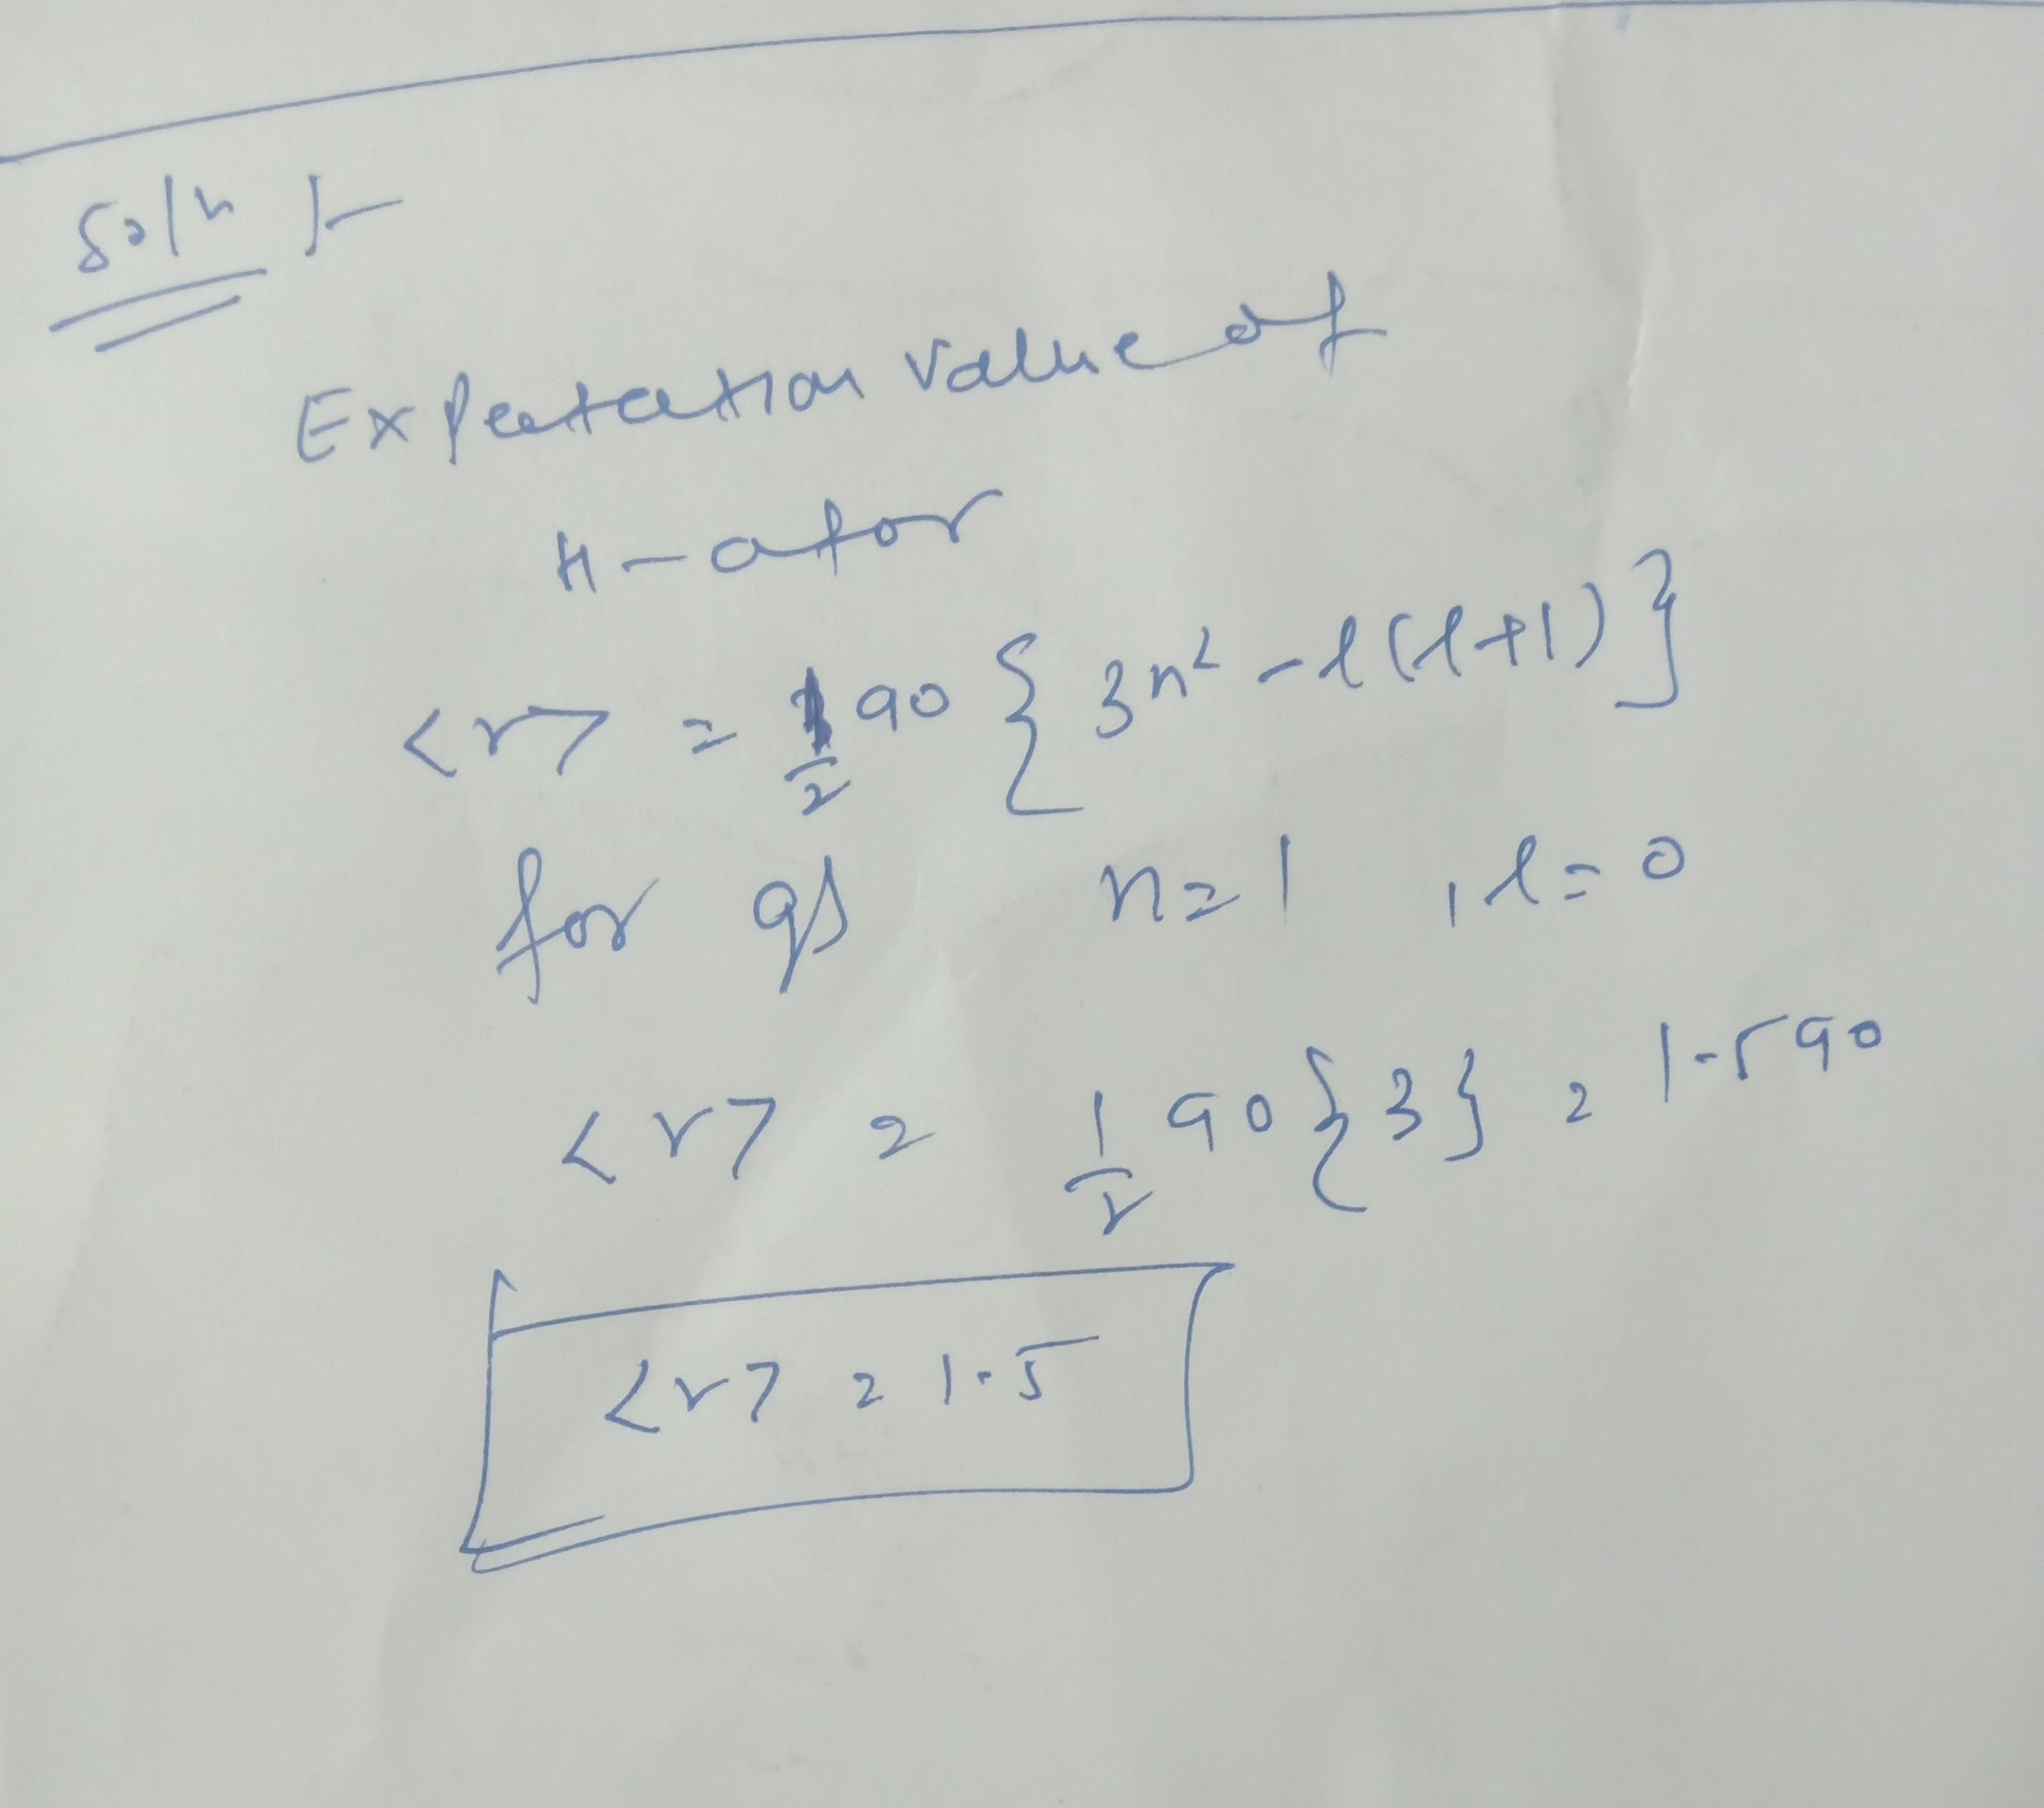 Soln :-
Expectation value of
H-ator
<r> = 1/2 a0 { 3n² - l(l+1) }
for gs n=1 , l=0
<r> = 1/2 a0 {3} = 1.5 a0
<r> = 1.5